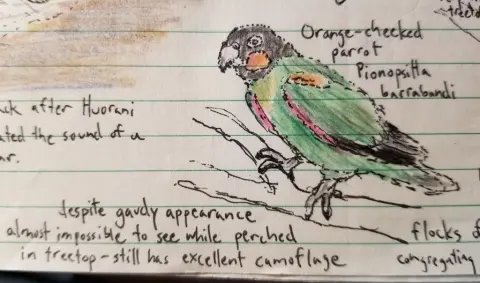 Orange-cheeked
parrot
Pionopsitta
barrabandi
after Huorani
the sound of a
despite gaudy appearance
almost impossible to see while perched
in treetop - still has excellent camoflage
flocks
congregating